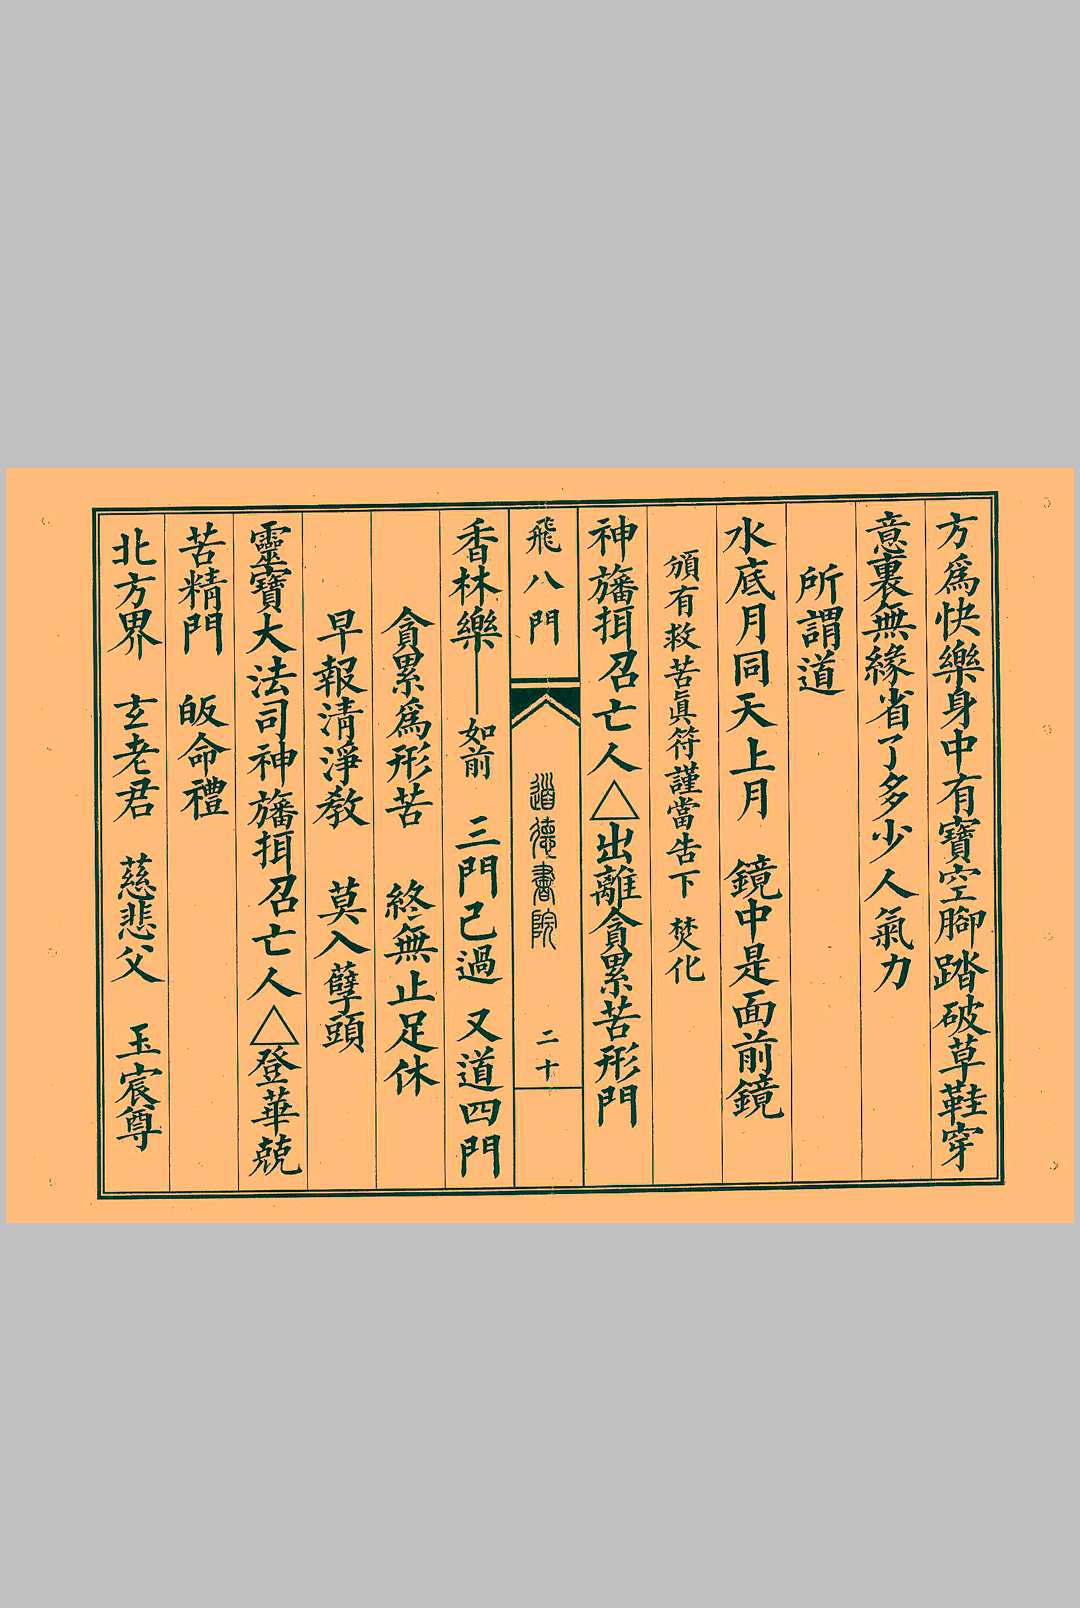 方爲快樂身中有寶空腳踏破草鞋穿
意裏無緣省了多少人氣力
所謂道
水底月同天上月 鏡中是面前鏡
頒有救苦眞符謹當告下 焚化
神旛揖召亡人△出離貪累苦形門
飛八門 道德書院 二十
香林樂—如前 三門已過 又道四門
貪累爲形苦 終無止足休
早報清淨教 莫入孽頭
靈寶大法司神旛揖召亡人△登華兢
苦精門 皈命禮
北方界 玄老君 慈悲父 玉宸尊